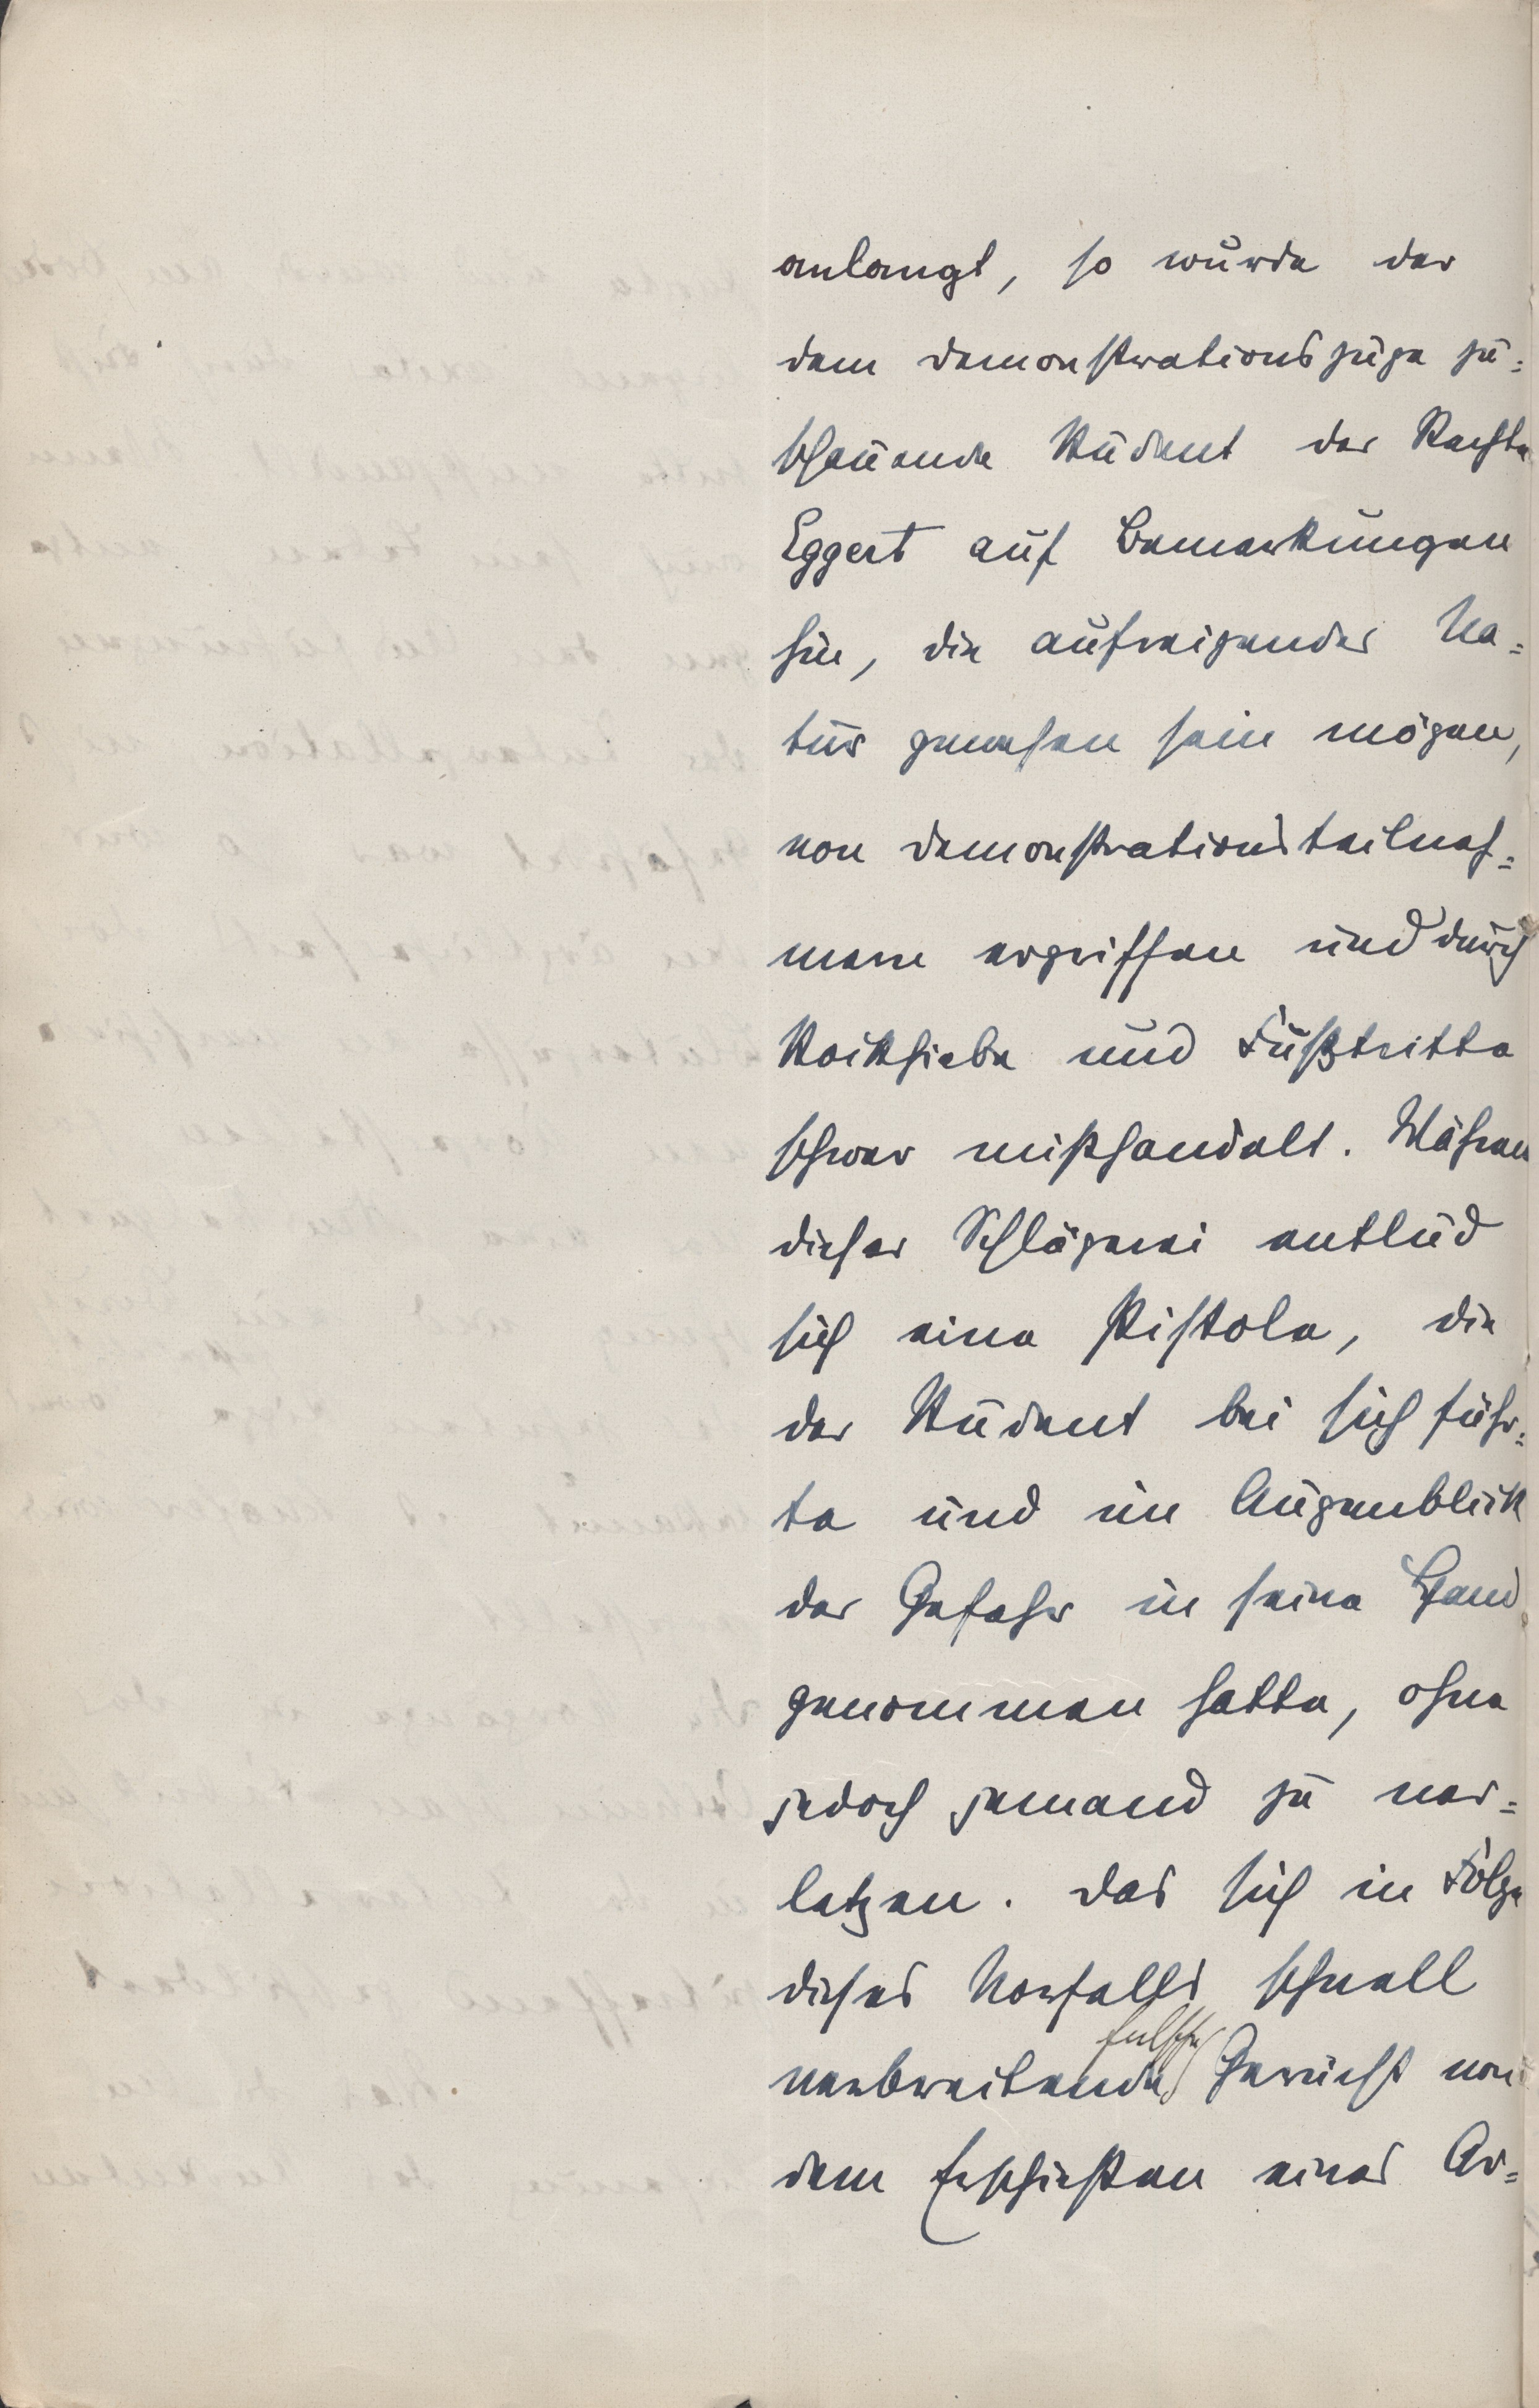 anlangt, so wurde der
dem Demonstrationszuge zu=
schauende Student der Rechte
Eggert auf Bemerkungen
hin, die aufreizender Na=
tur gewesen sein mögen,
von Demonstrationsteilneh=
mern ergriffen und durch
Stockhiebe und Fußtritte
schwer mißhandelt. Währen
dieser Schlägerei entlud
sich eine Pistole, die
der Student bei sich führ=
te und im Augenblick
der Gefahr in seine Hand
genommen hatte, ohne
jedoch jemand zu ver=
letzen. Das sich in Folge
dieses Vorfalls schnell
falsche
verbreitende Gerücht von
dem Erschießen eines Ar=